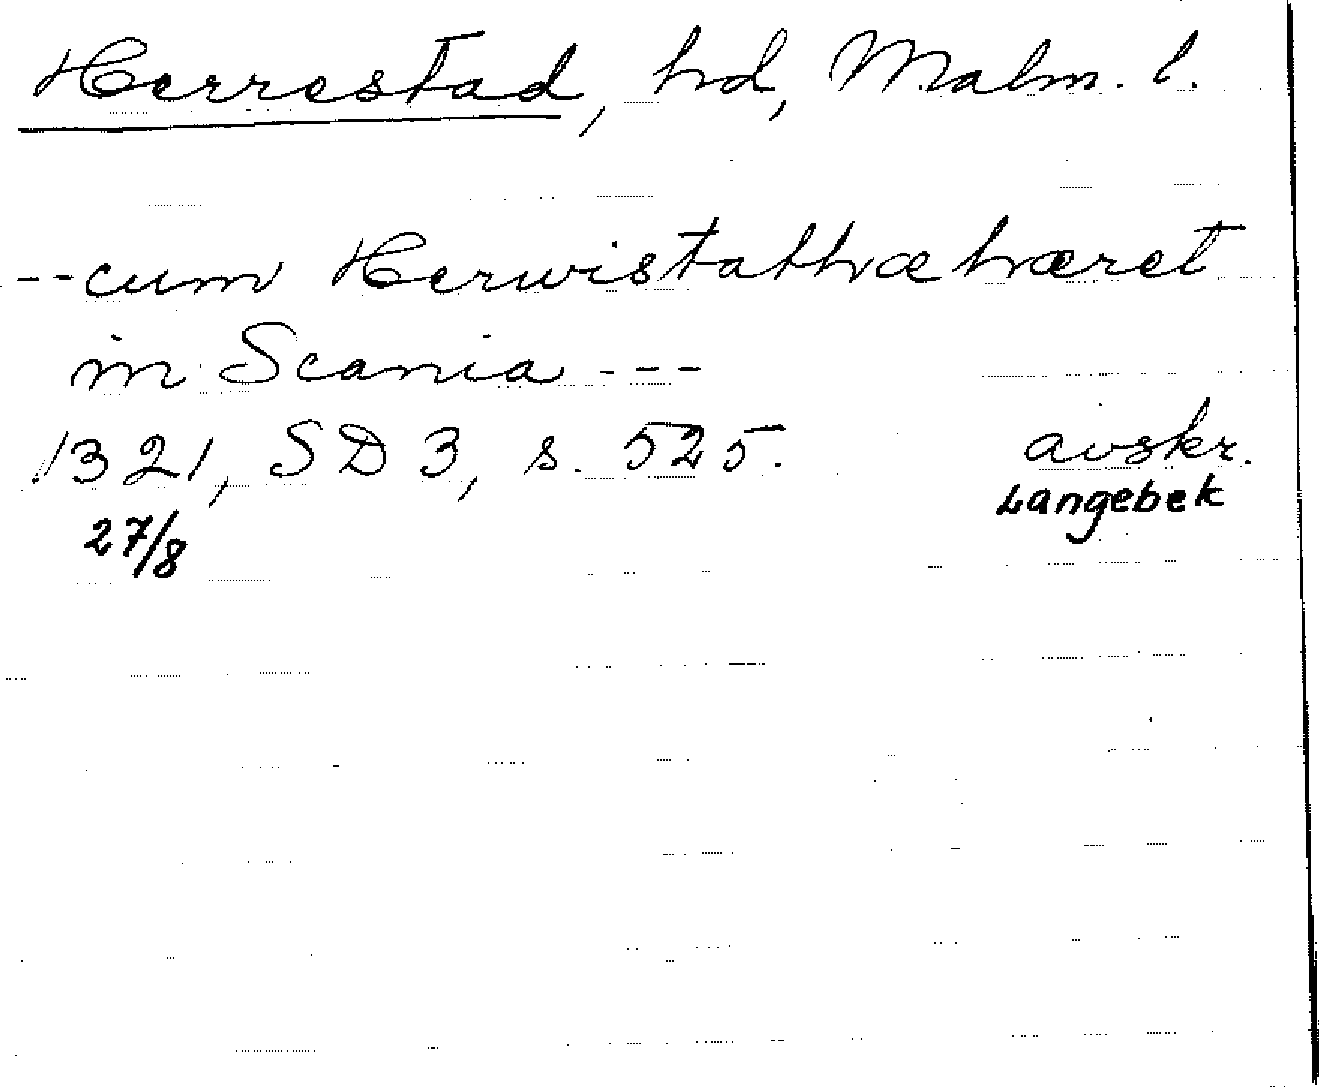 Herrestad, hd, Malm. l.
--cum Herwistathæhæret
in Scania ---
1321, SD 3, s. 525. avskr.
27/8 Langebek